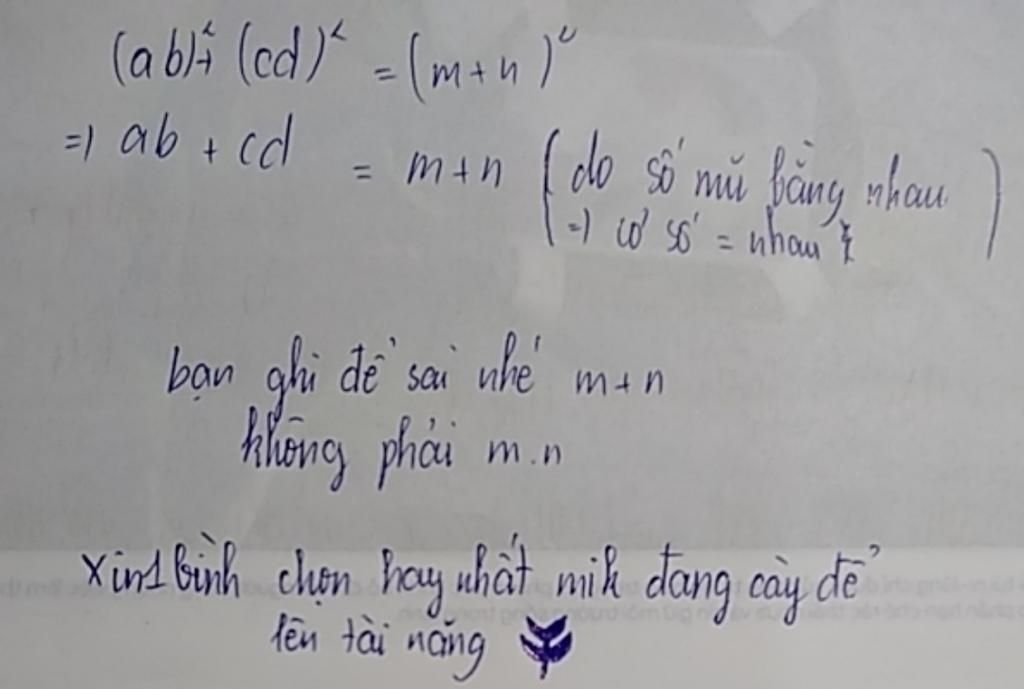 (ab)² + (cd)² = (m+n)²
=) ab + cd = m+n (do số mũ bằng nhau
=) cơ số = nhau)
bạn ghi đề sai nhé m+n
không phải m.n
xin 1 bình chọn hay nhất mik đang cày để
lên tài năng